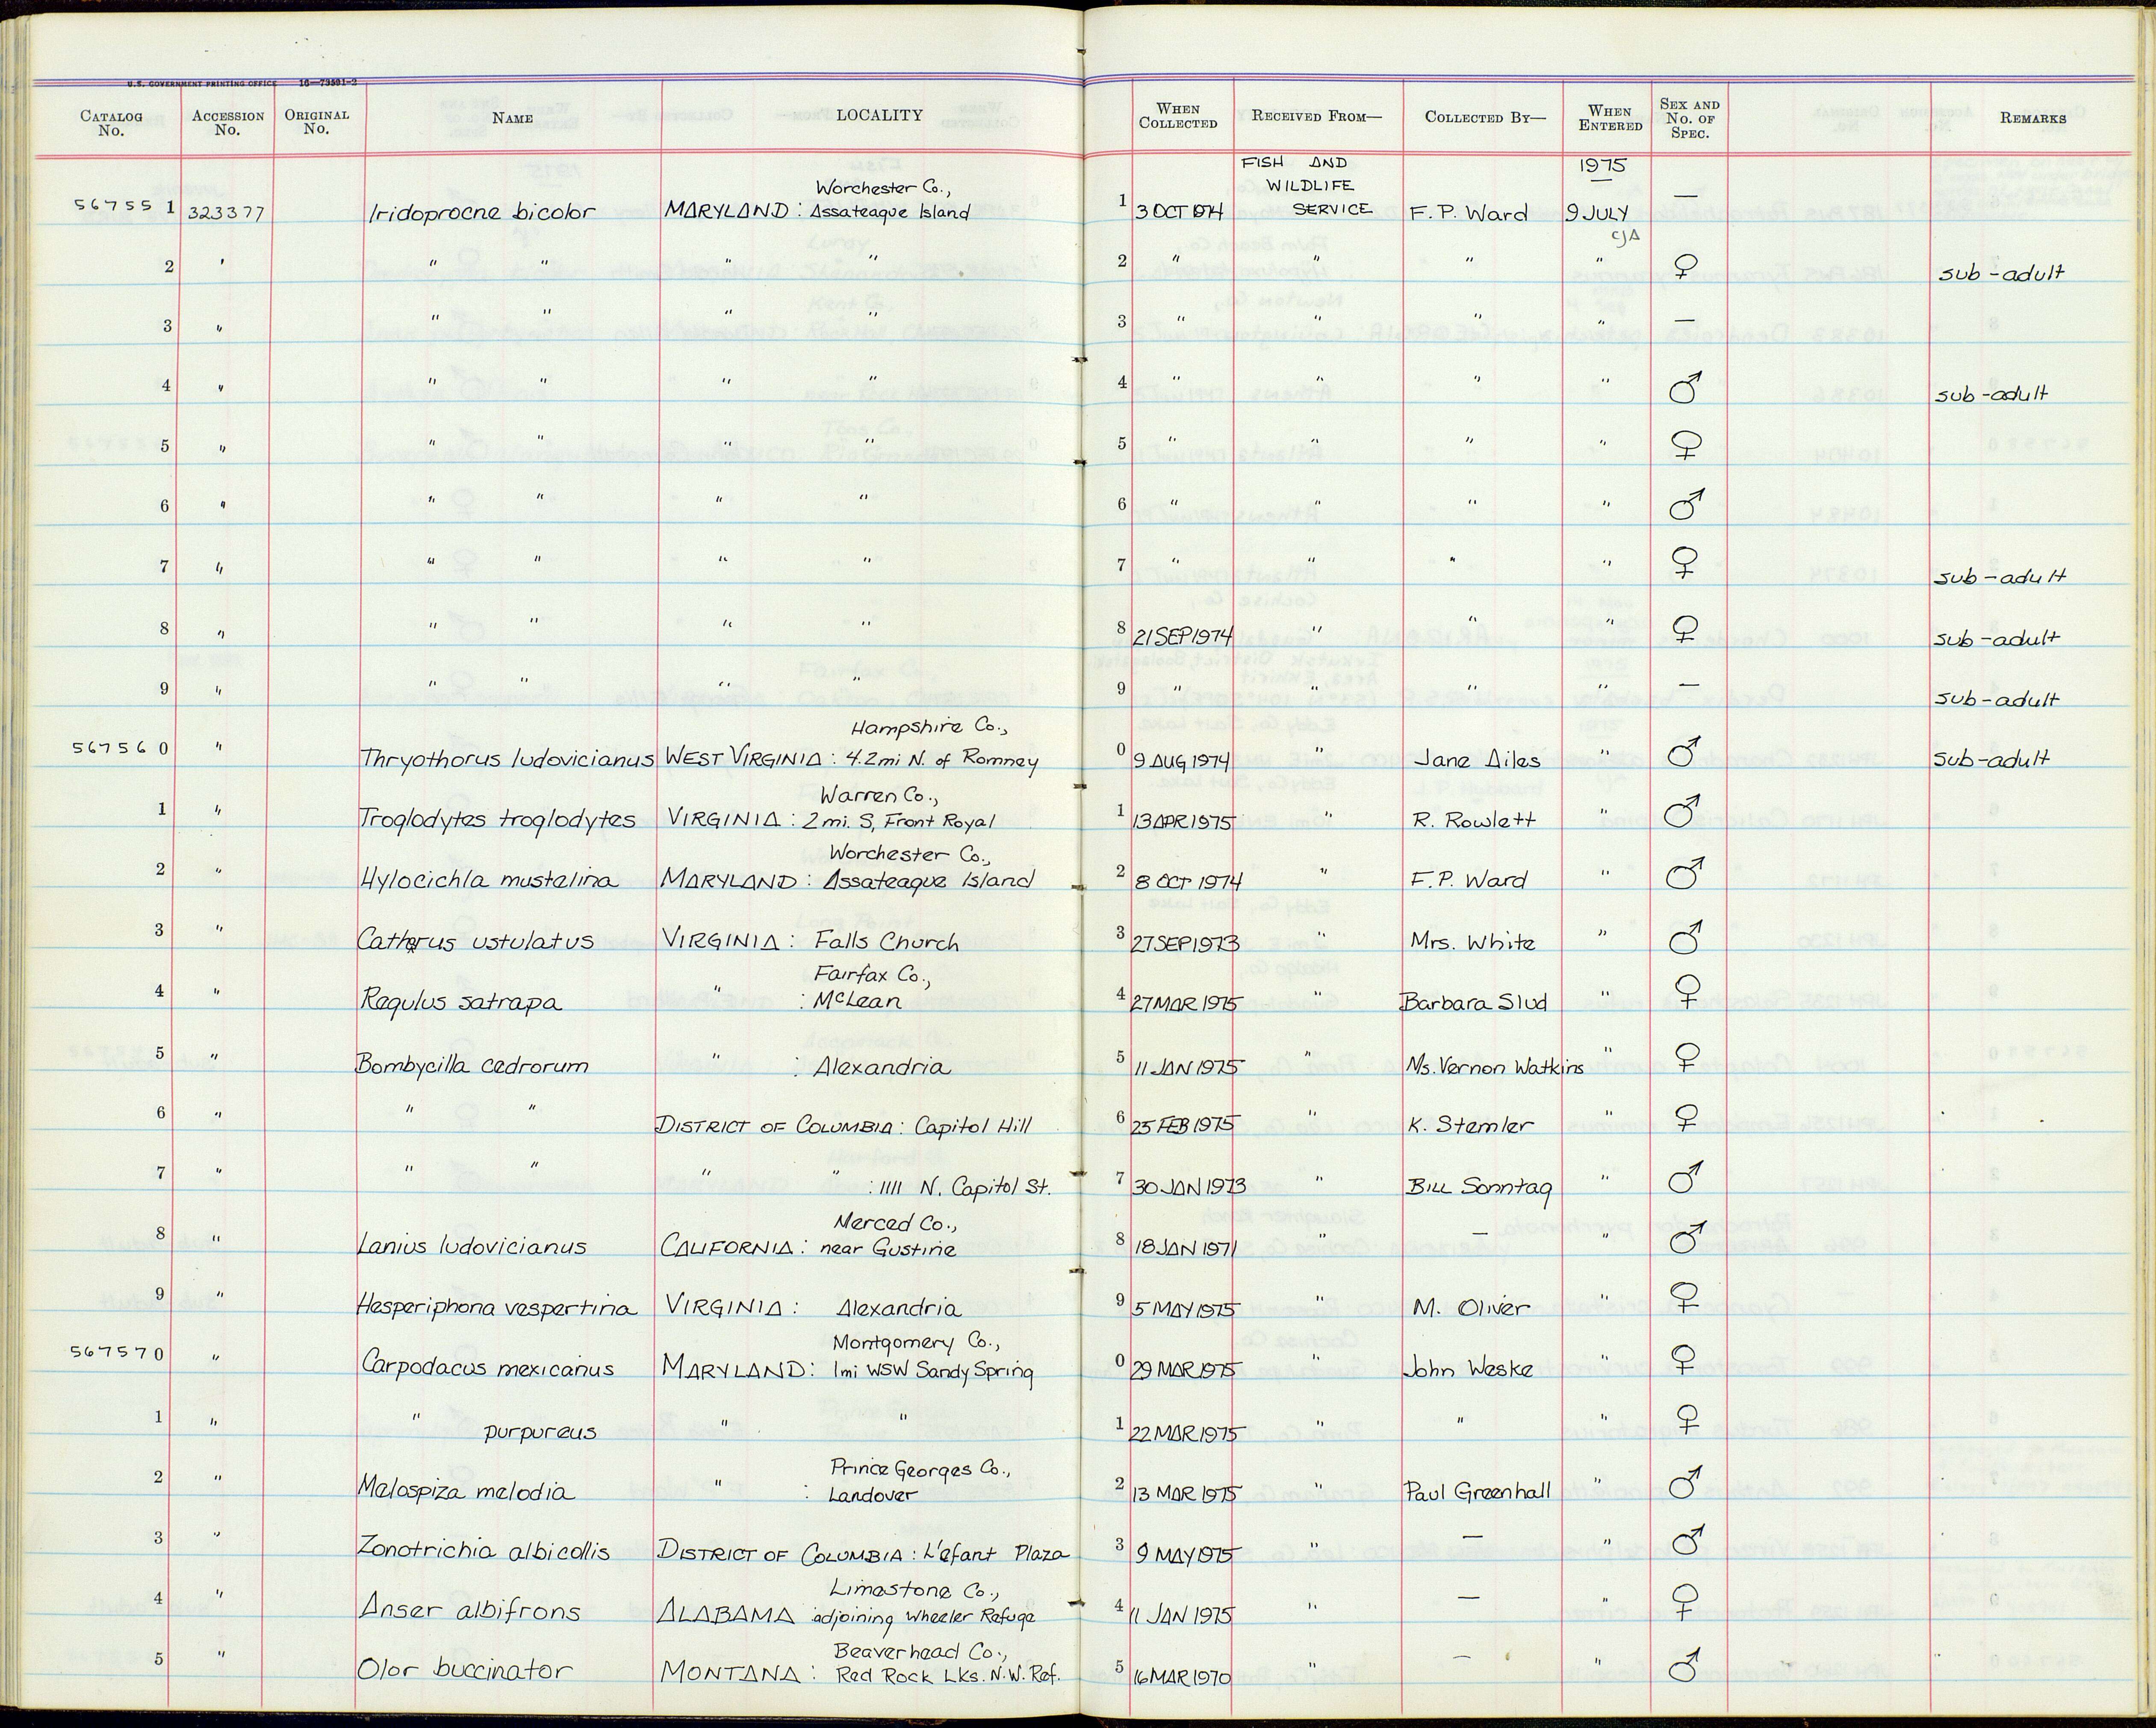 U.S. GOVERNMENT PRINTING OFFICE 16—73591-2
CATALOG No. ACCESSION No. ORIGINAL No. NAME LOCALITY WHEN COLLECTED RECEIVED FROM— COLLECTED BY— WHEN ENTERED SEX AND No. OF SPEC. REMARKS
FISH AND 1975
Worchester Co., WILDLIFE
567551 323377 Iridoprocne bicolor MARYLAND : Assateague Island 1 3 OCT 1974 SERVICE F. P. Ward 9 JULY —
CJA
2 " " " " " 2 " " " " ♀ sub-adult
3 " " " " " 3 " " " " —
4 " " " " " 4 " " " " ♂ sub-adult
5 " " " " " 5 " " " " ♀
6 " " " " " 6 " " " " ♂
7 " " " " " 7 " " " " ♀ sub-adult
8 " " " " " 8 21 SEP 1974 " " " ♀ sub-adult
9 " " " " " 9 " " " " — sub-adult
Hampshire Co.,
567560 " Thryothorus ludovicianus WEST VIRGINIA : 4.2mi N. of Romney 0 9 AUG 1974 " Jane Ailes " ♂ sub-adult
Warren Co.,
1 " Troglodytes troglodytes VIRGINIA : 2 mi. S, Front Royal 1 13 APR 1975 " R. Rowlett " ♂
Worchester Co.,
2 " Hylocichla mustelina MARYLAND : Assateague Island 2 8 OCT 1974 " F.P. Ward " ♂
3 " Catharus ustulatus VIRGINIA : Falls Church 3 27 SEP 1973 " Mrs. White " ♂
Fairfax Co.,
4 " Regulus satrapa " : McLean 4 27 MAR 1975 " Barbara Slud " ♀
5 " Bombycilla cedrorum " : Alexandria 5 11 JAN 1975 " Ms. Vernon Watkins " ♀
6 " " " DISTRICT OF COLUMBIA : Capitol Hill 6 25 FEB 1975 " K. Stemler " ♀
7 " " " " " : 1111 N. Capitol St. 7 30 JAN 1973 " BILL Sonntag " ♂
Merced Co.,
8 " Lanius ludovicianus CALIFORNIA : near Gustine 8 18 JAN 1971 " — " ♂
9 " Hesperiphona vespertina VIRGINIA : Alexandria 9 5 MAY 1975 " M. Oliver " ♀
Montgomery Co.,
567570 " Carpodacus mexicanus MARYLAND : 1mi WSW Sandy Spring 0 29 MAR 1975 " John Weske " ♀
1 " " purpureus " " 1 22 MAR 1975 " " " ♀
Prince Georges Co.,
2 " Melospiza melodia " : Landover 2 13 MAR 1975 " Paul Greenhall " ♂
3 " Zonotrichia albicollis DISTRICT OF COLUMBIA : L'efant Plaza 3 9 MAY 1975 " — " ♂
Limestone Co.,
4 " Anser albifrons ALABAMA adjoining Wheeler Refuge 4 11 JAN 1975 " — " ♀
Beaverhead Co.,
5 " Olor buccinator MONTANA : Red Rock Lks. N.W. Ref. 5 16 MAR 1970 " — " ♂